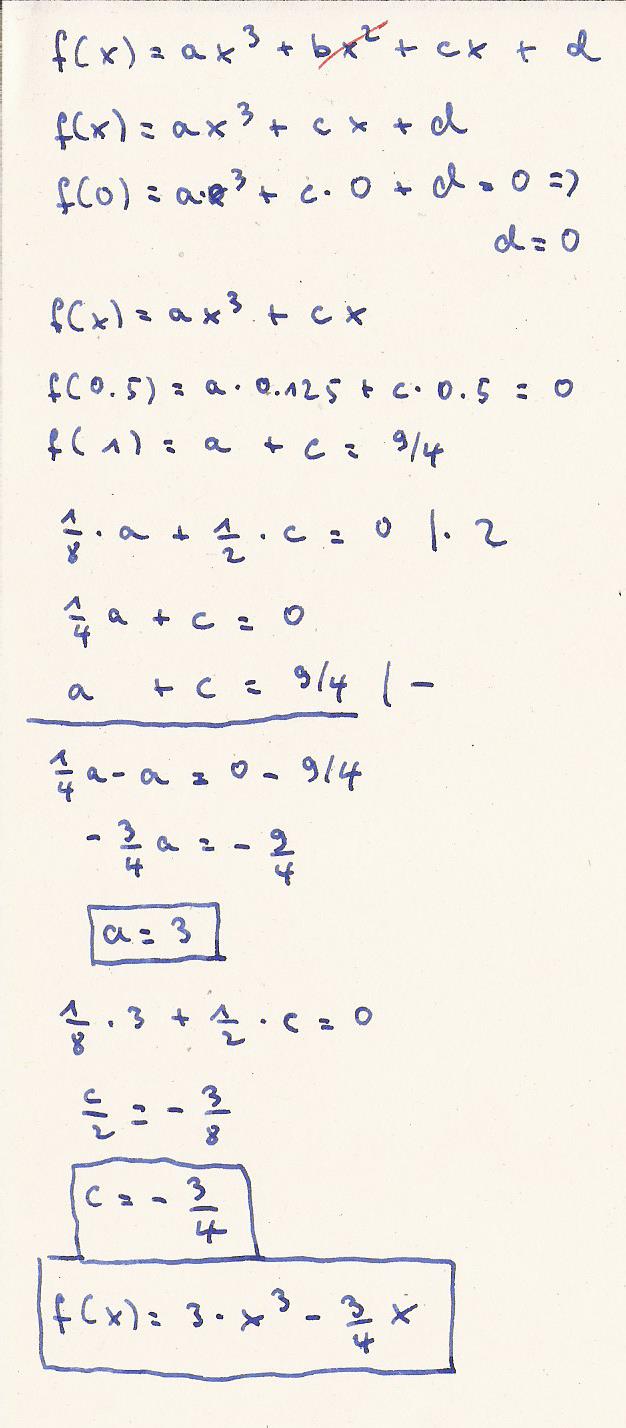 f(x) = ax³ + bx² + cx + d
f(x) = ax³ + cx + d
f(0) = a·0³ + c·0 + d = 0 =>
d = 0
f(x) = ax³ + cx
f(0.5) = a·0.125 + c·0.5 = 0
f(1) = a + c = 9/4
1/8 · a + 1/2 · c = 0 |· 2
1/4 a + c = 0
a + c = 9/4 | −
1/4 a − a = 0 − 9/4
− 3/4 a = − 9/4
a = 3
1/8 · 3 + 1/2 · c = 0
c/2 = − 3/8
c = − 3/4
f(x) = 3 · x³ − 3/4 x